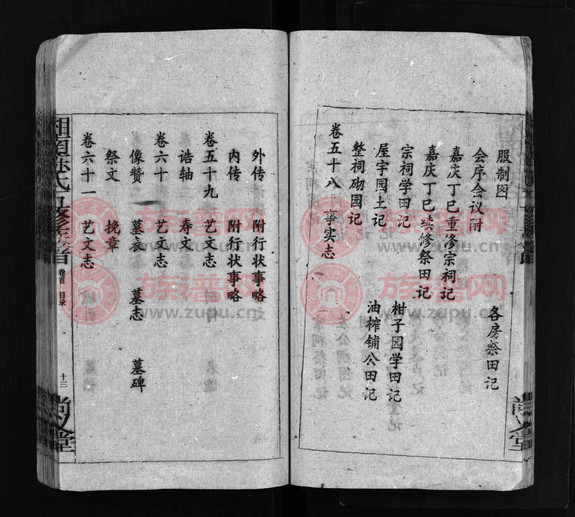 服制图
会序会议附
各房祭田记
嘉庆丁巳重修宗祠记
嘉庆丁巳续修祭田记
宗祠学田记
柑子园学田记
屋宇园土记
油榨铺公田记
整祠砌园记
卷五十八 事实志
外传 附行状事略
内传 附行状事略
卷五十九 艺文志
诰轴 寿文
卷六十 艺文志
像赞 墓表 墓志 墓碑
祭文 挽章
卷六十一 艺文志
卷首 目录
十三
尚义堂
族谱网
www.zupu.cn